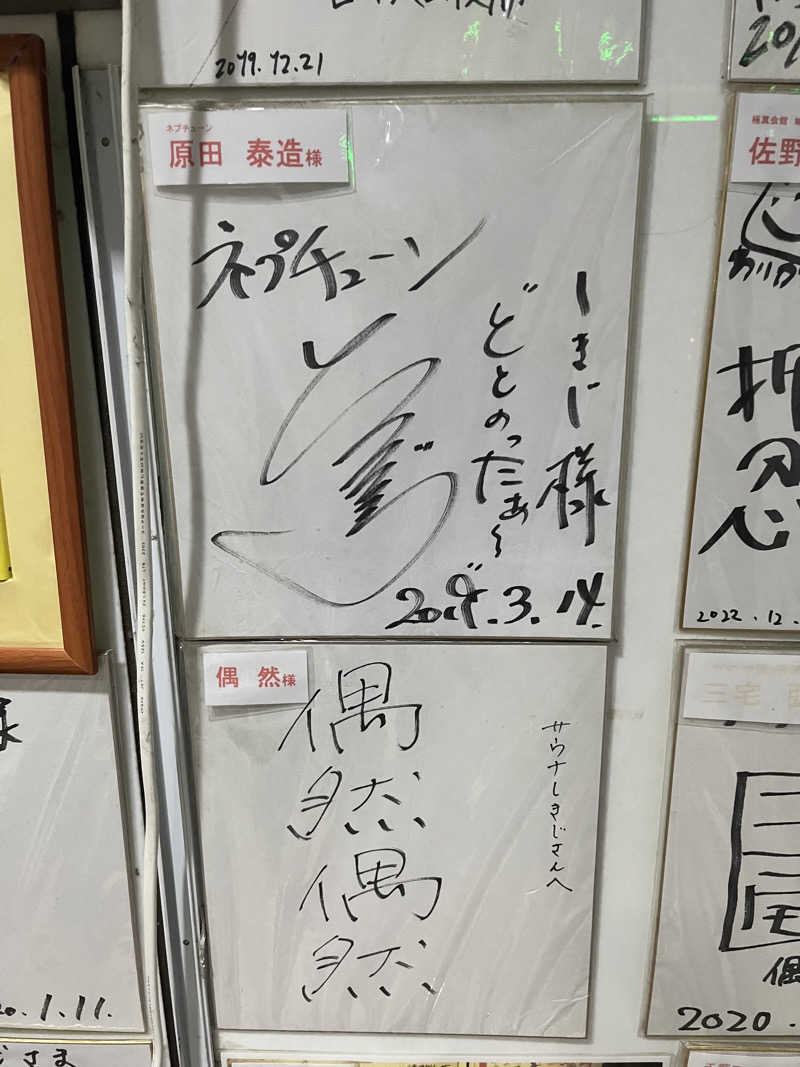 2019.12.21
ネプチューン
原田 泰造様
ネプチューン
しまじ様
どとのったぁ〜
2019.3.14.
偶 然様
偶然偶然
サウナしきじさんへ
極真会館
佐野
押忍
2022.12.
三宅
偶
2020.
様
20.1.11.
じさま